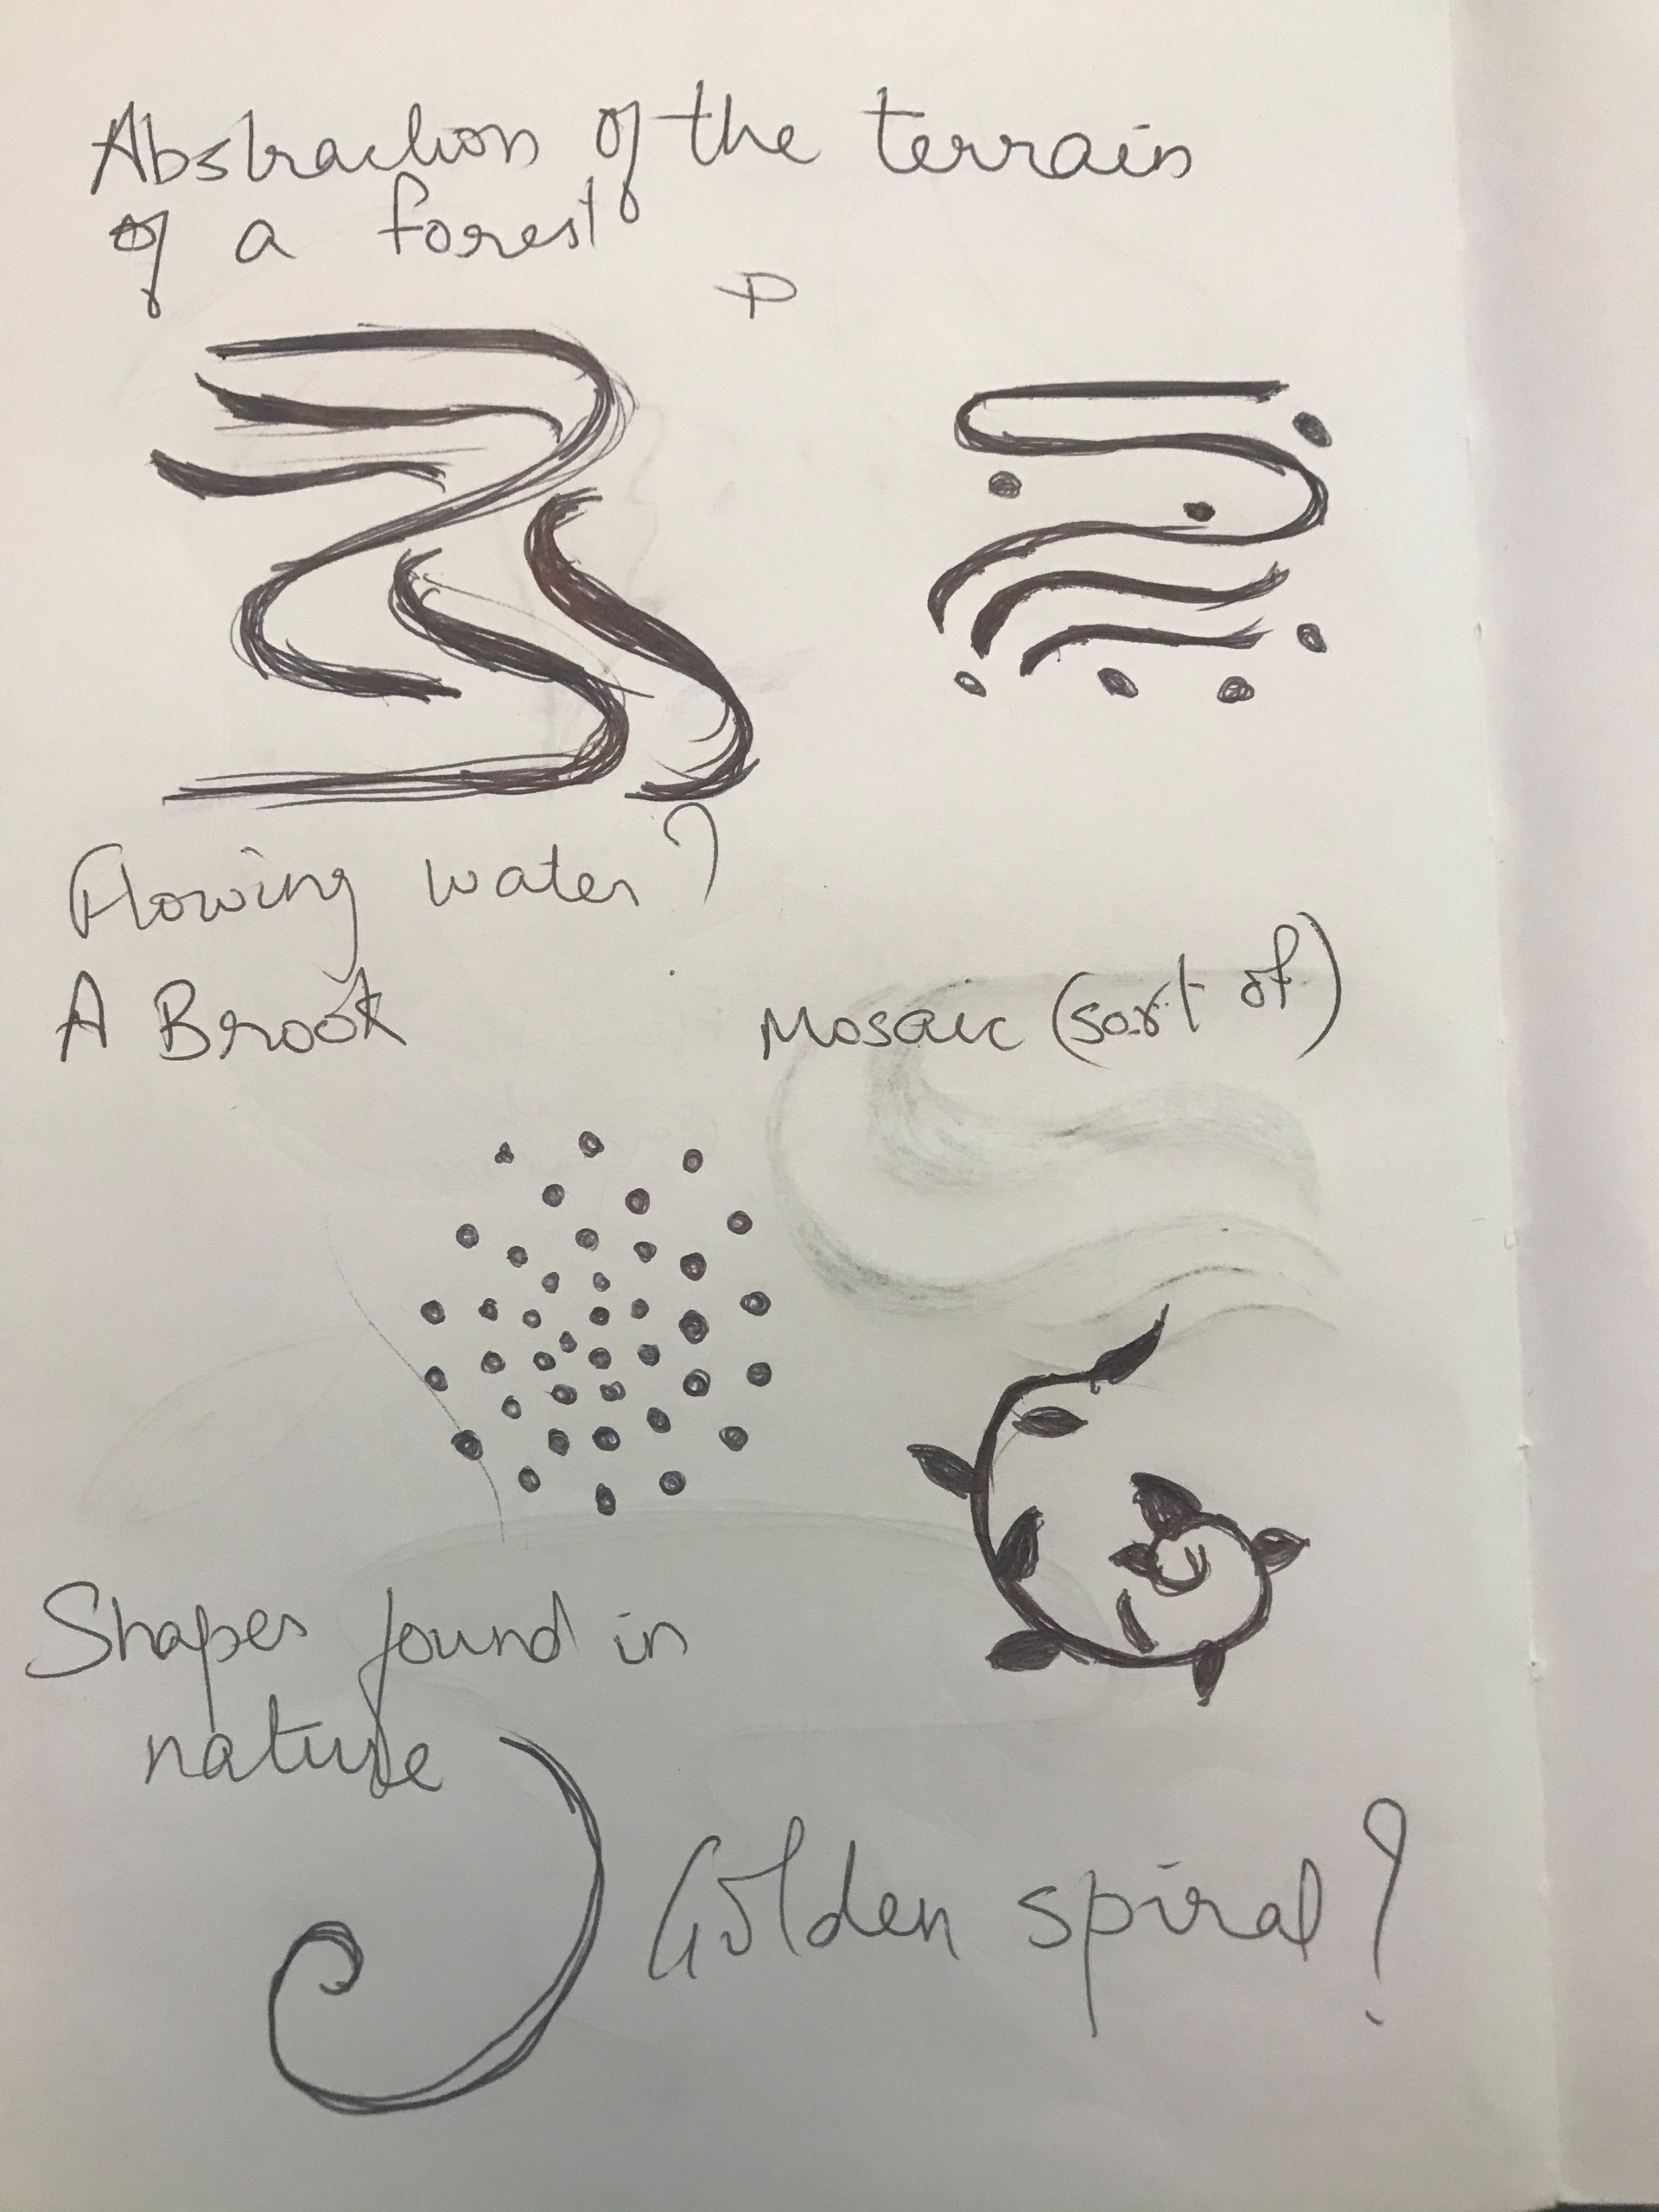 Abstraction of the terrain
of a forest
Flowing water?
A Brook
Mosaic (sort of)
Shapes found in
nature
Golden spiral?